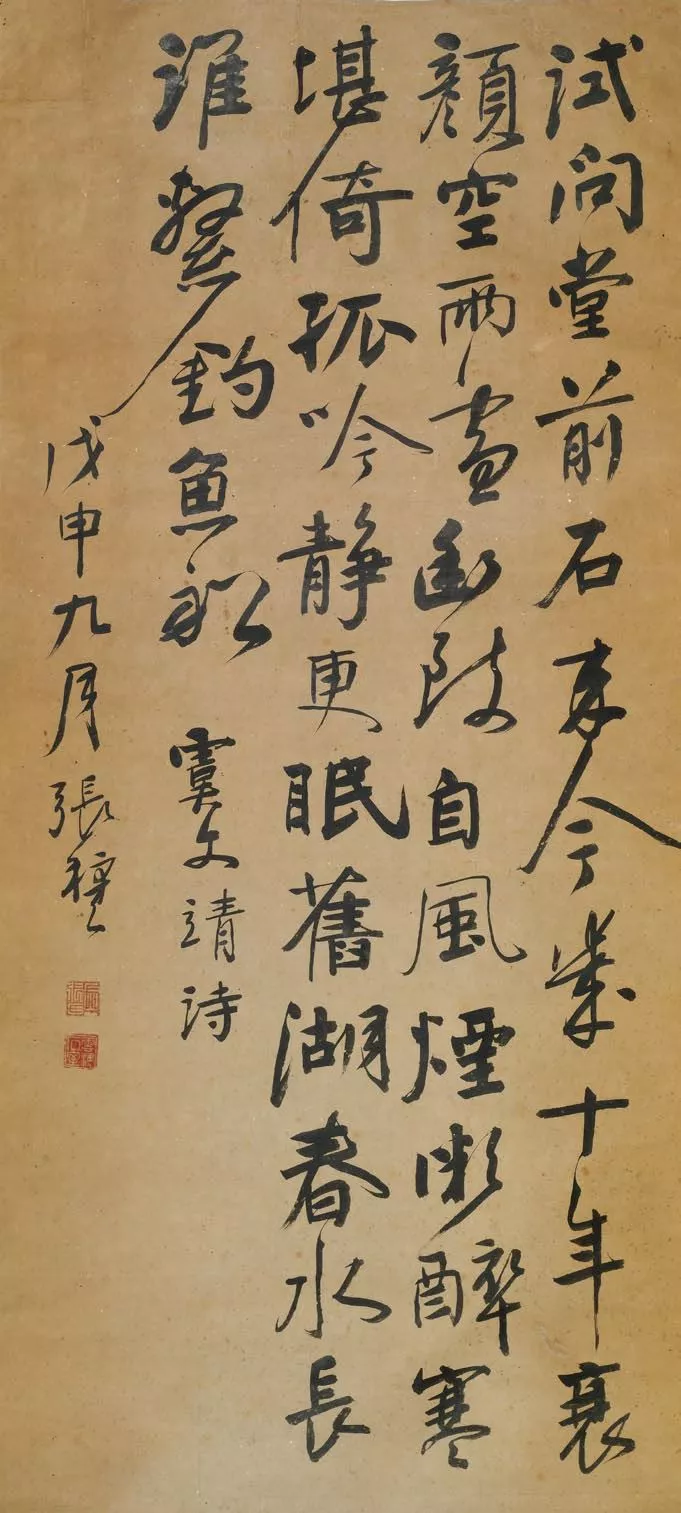 試問堂前石來今幾十年衰
顏空雨幽自風煙醉寒
堪倚孤吟靜更眠舊湖春水長
誰繫釣魚船 虞文靖詩
戊申九月張